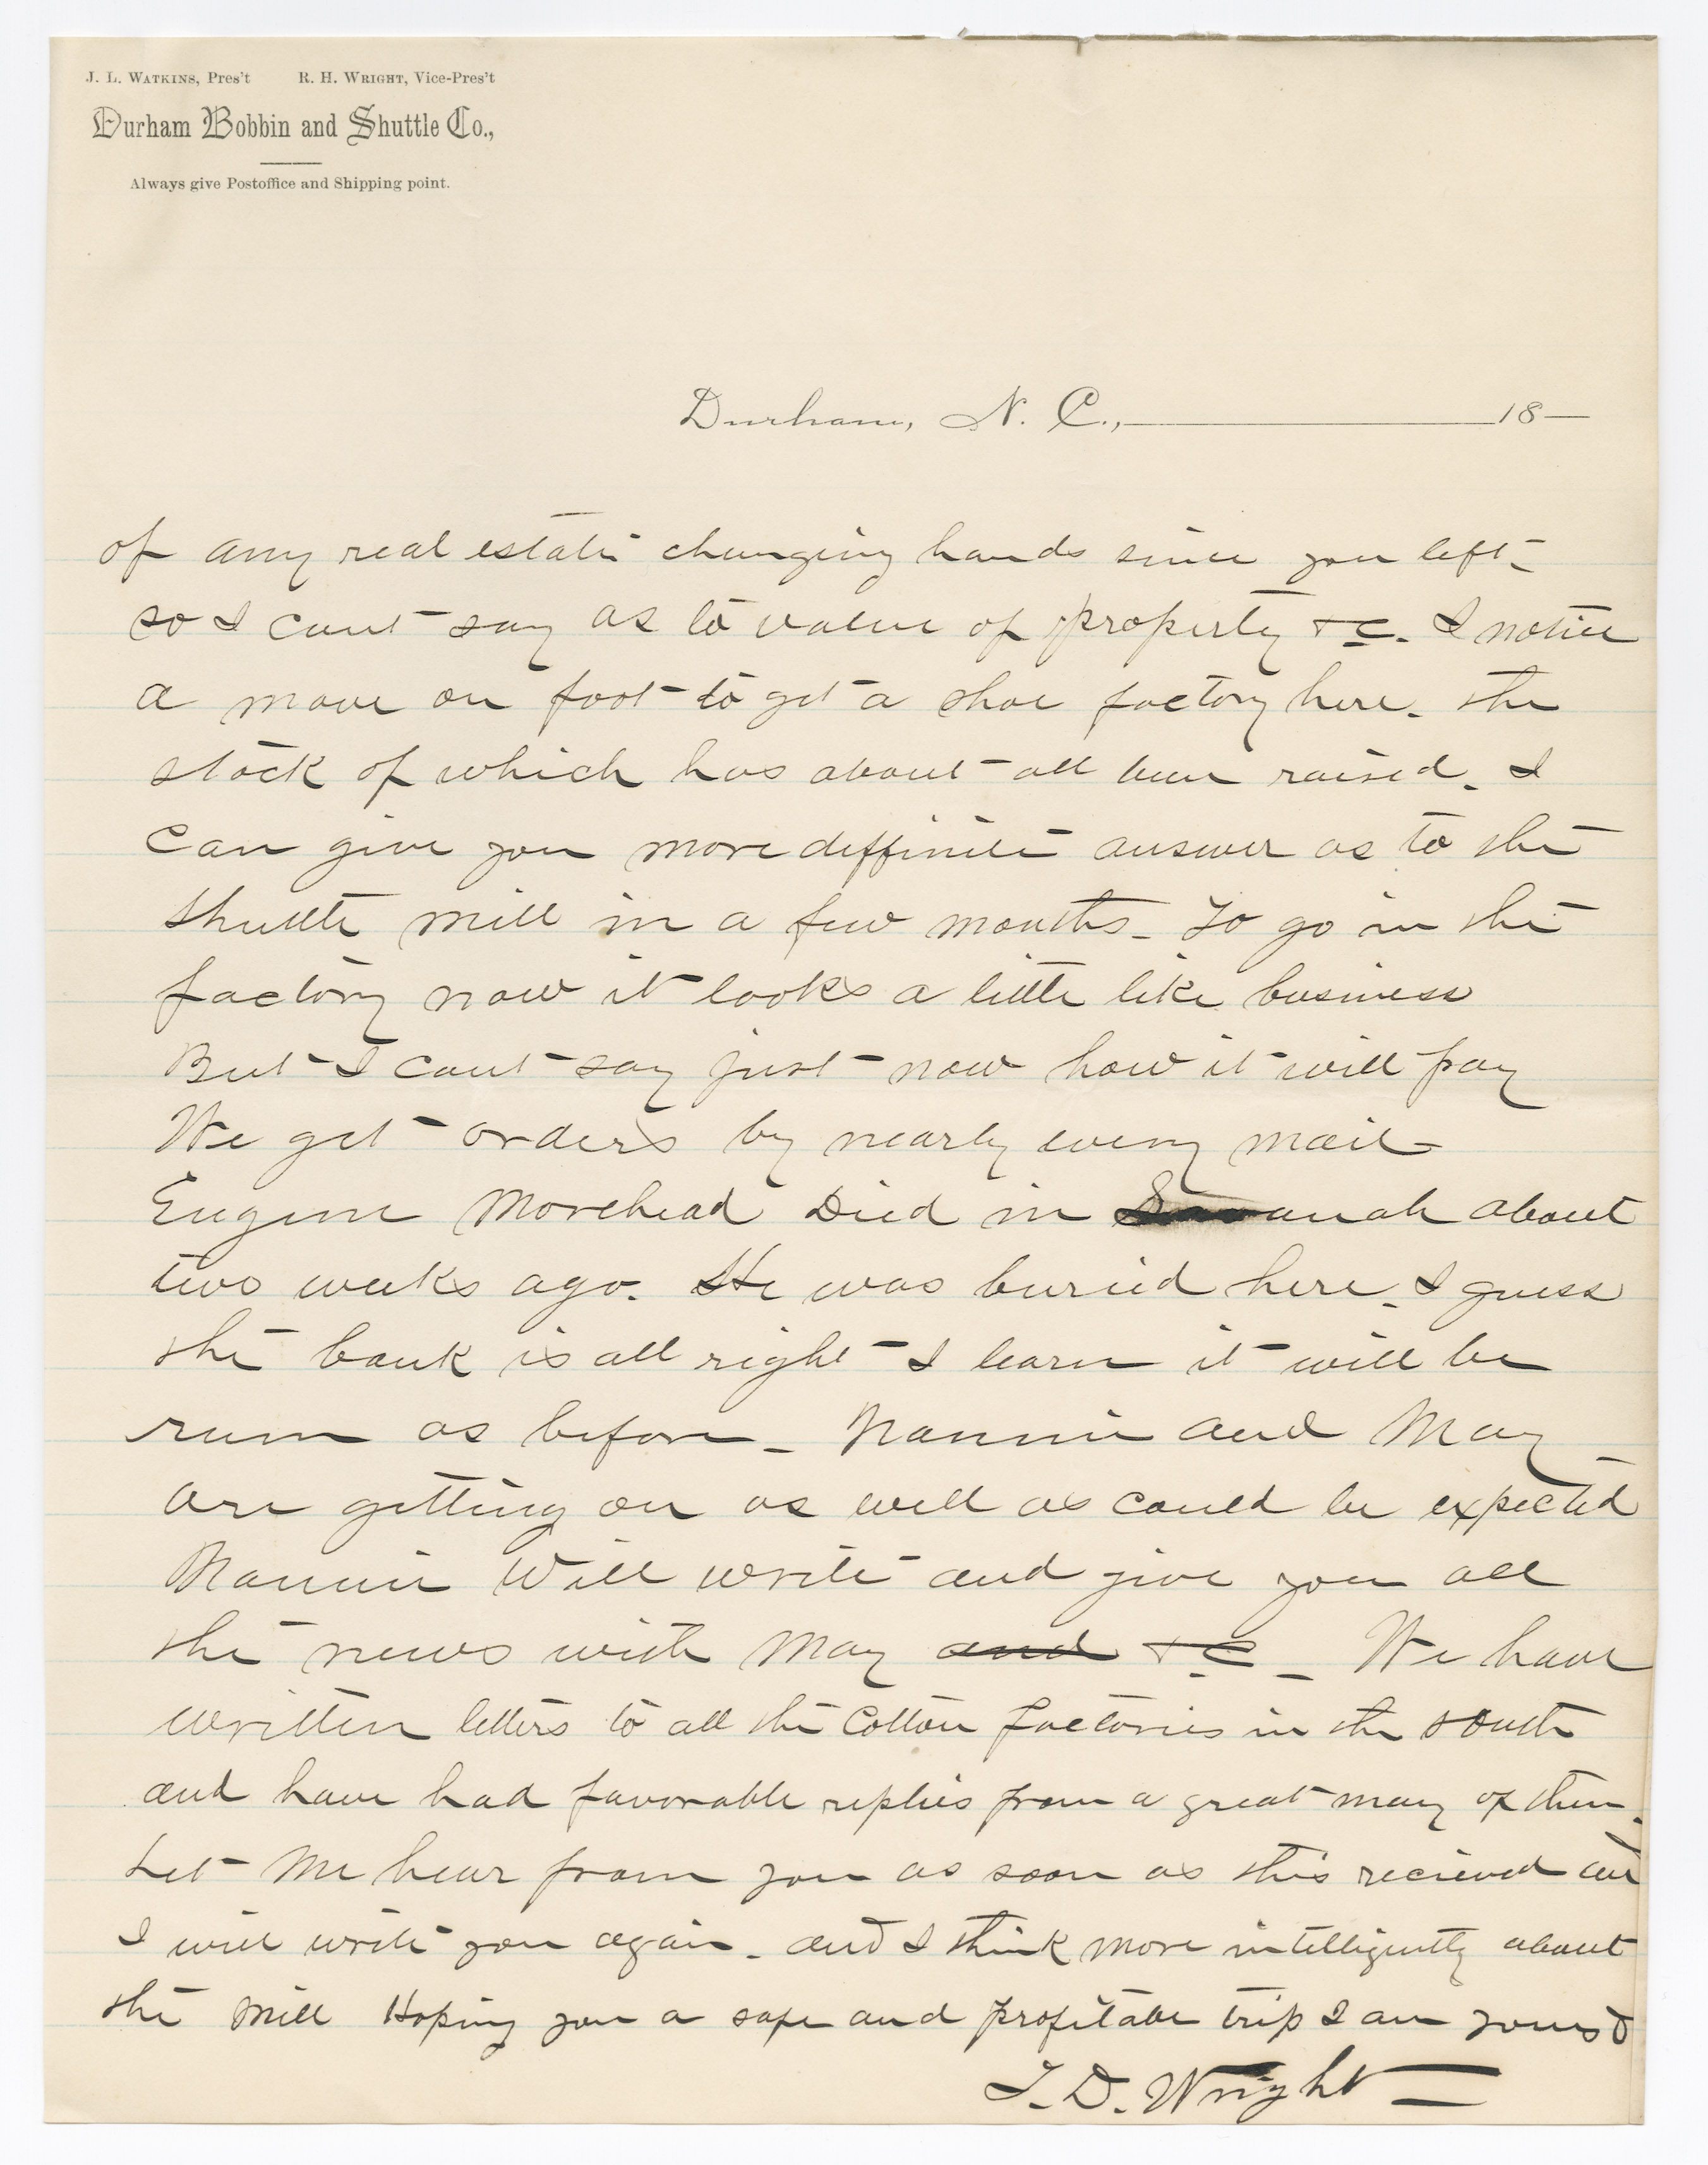 J. L. Watkins, Pres't R. H. Wright, Vice-Pres't
Durham Bobbin and Shuttle Co.,
Always give Postoffice and Shipping point.
Durham, N. C., 18
of any real estate changing hands since you left.
so I cant say as to value of property & c. I notice
a move on foot to get a shoe factory here. the
stock of which has about all been raised. I
can give you more deffinite answer as to the
Shuttle mill in a few months. To go in the
factory now it looks a little like business
But I cant say just now how it will pay
We get orders by nearly every mail
Eugene Morehead Died in Savanah about
two weeks ago. He was buried here. I guess
the bank is all right I learn it will be
run as before. Nannie and May
are getting on as well as could be expected
Nannie Will write and give you all
the news with May and & C. We have
written letters to all the Cotton factories in the South
and have had favorable replies from a great many of them.
Let Me hear from you as soon as this recieved and
I will write you again. and I think more intelligently about
the Mill Hoping you a safe and profitable trip I am yours
T. D. Wright